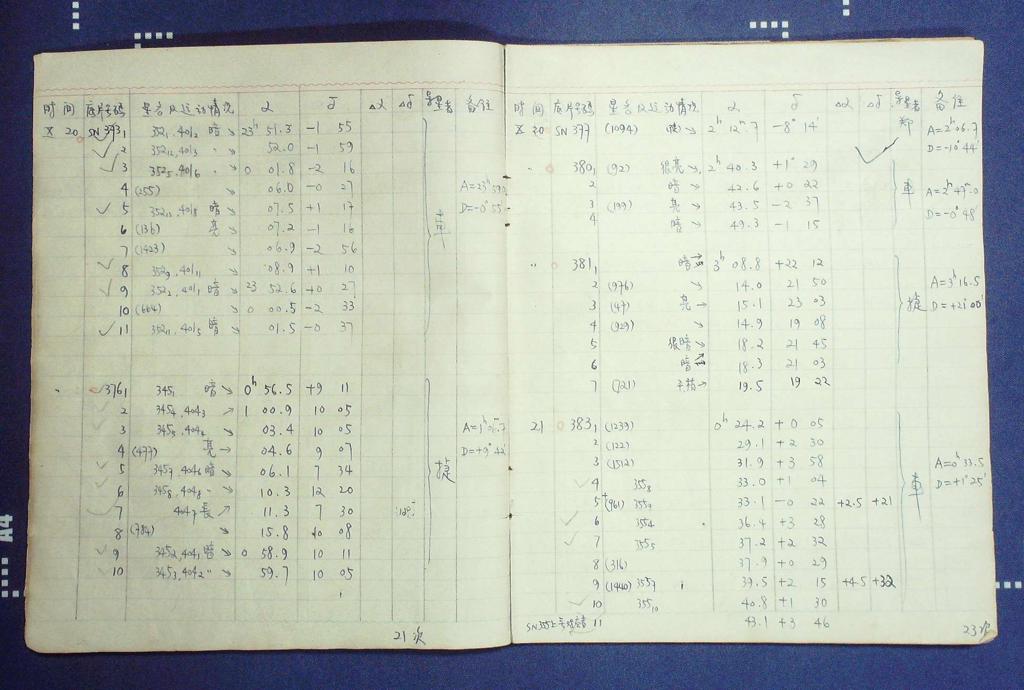 时间 底片号码 星名及运动情况 α δ Δα Δδ 备注
X 20 SN 373₁ 352₁, 401₂ 暗 ↘ 23ʰ 51.3 -1 55
2 352₁₂, 401₃ " 52.0 -1 59
3 352₅, 401₆ ↘ 0 01.8 -2 16
4 (255) ↘ 06.0 -0 27 A=23ʰ
5 352₁₃, 401₈ 暗 ↘ 07.5 +1 17 D=-0°55'
6 (136) 亮 ↘ 07.2 -1 16 車
7 (1423) ↘ 06.9 -2 56
8 352₉, 401₁₁ ↘ 08.9 +1 10
9 352₂, 401₁ 暗 ↘ 23 52.6 +0 27
10 (604) ↘ 0 00.5 -2 33
11 352₁₁, 401₅ 暗 ↘ 01.5 -0 37
" 376₁ 345₁ 暗 ↘ 0ʰ 56.5 +9 11
2 345₄, 404₃ ↗ 1 00.9 10 05
3 345₅, 404₄ ↘ 03.4 10 05 A=1ʰ
4 (477) 亮 ↘ 04.6 9 07 D=+9°42'
5 345₇, 404₆ 暗 ↘ 06.1 7 34 捷
6 345₈, 404₈ " ↘ 10.3 12 20
7 404₇ 長 ↗ 11.3 7 30
8 (784) ↘ 15.8 10 08
9 345₂, 404₁ 暗 ↘ 0 58.9 10 11
10 345₃, 404₂ " ↘ 59.7 10 05
21次
时间 底片号码 星名及运动情况 α δ Δα Δδ 备注
X 20 SN 377 (1094) ↘ 2ʰ 12ᵐ.7 -8° 14' 郑 A=2ʰ06.7
D=-10°44'
" 380₁ (92) 很亮 ↘ 2ʰ 40.3 +1° 29
2 暗 ↘ 42.6 +0 22 車 A=2ʰ47ᵐ.0
3 (199) 亮 ↘ 43.5 -2 37 D=-0°48'
4 暗 ↘ 49.3 -1 15
" 381₁ 暗 → 3ʰ 08.8 +22 12
2 (976) ↘ 14.0 21 50 A=3ʰ16.5
3 (47) 亮 → 15.1 23 03 捷 D=+21°00'
4 (929) ↘ 14.9 19 08
5 很暗 ↘ 18.2 21 45
6 暗 18.3 21 03
7 (721) → 19.5 19 22
21 383₁ (1239) 0ʰ 24.2 +0 05
2 (122) 29.1 +2 30
3 (1512) 31.9 +3 58 A=0ʰ33.5
4 355₈ 33.0 +1 04 車 D=+1°25'
5 (961) 355₉ 33.1 -0 22 +2.5 +21
6 355₄ 36.4 +3 28
7 355₅ 37.2 +2 32
8 (316) 37.9 +0 29
9 (1440) 355₇ 39.5 +2 15 +4.5 +32
10 355₁₀ 40.8 +1 30
11 43.1 +3 46
23次
A4